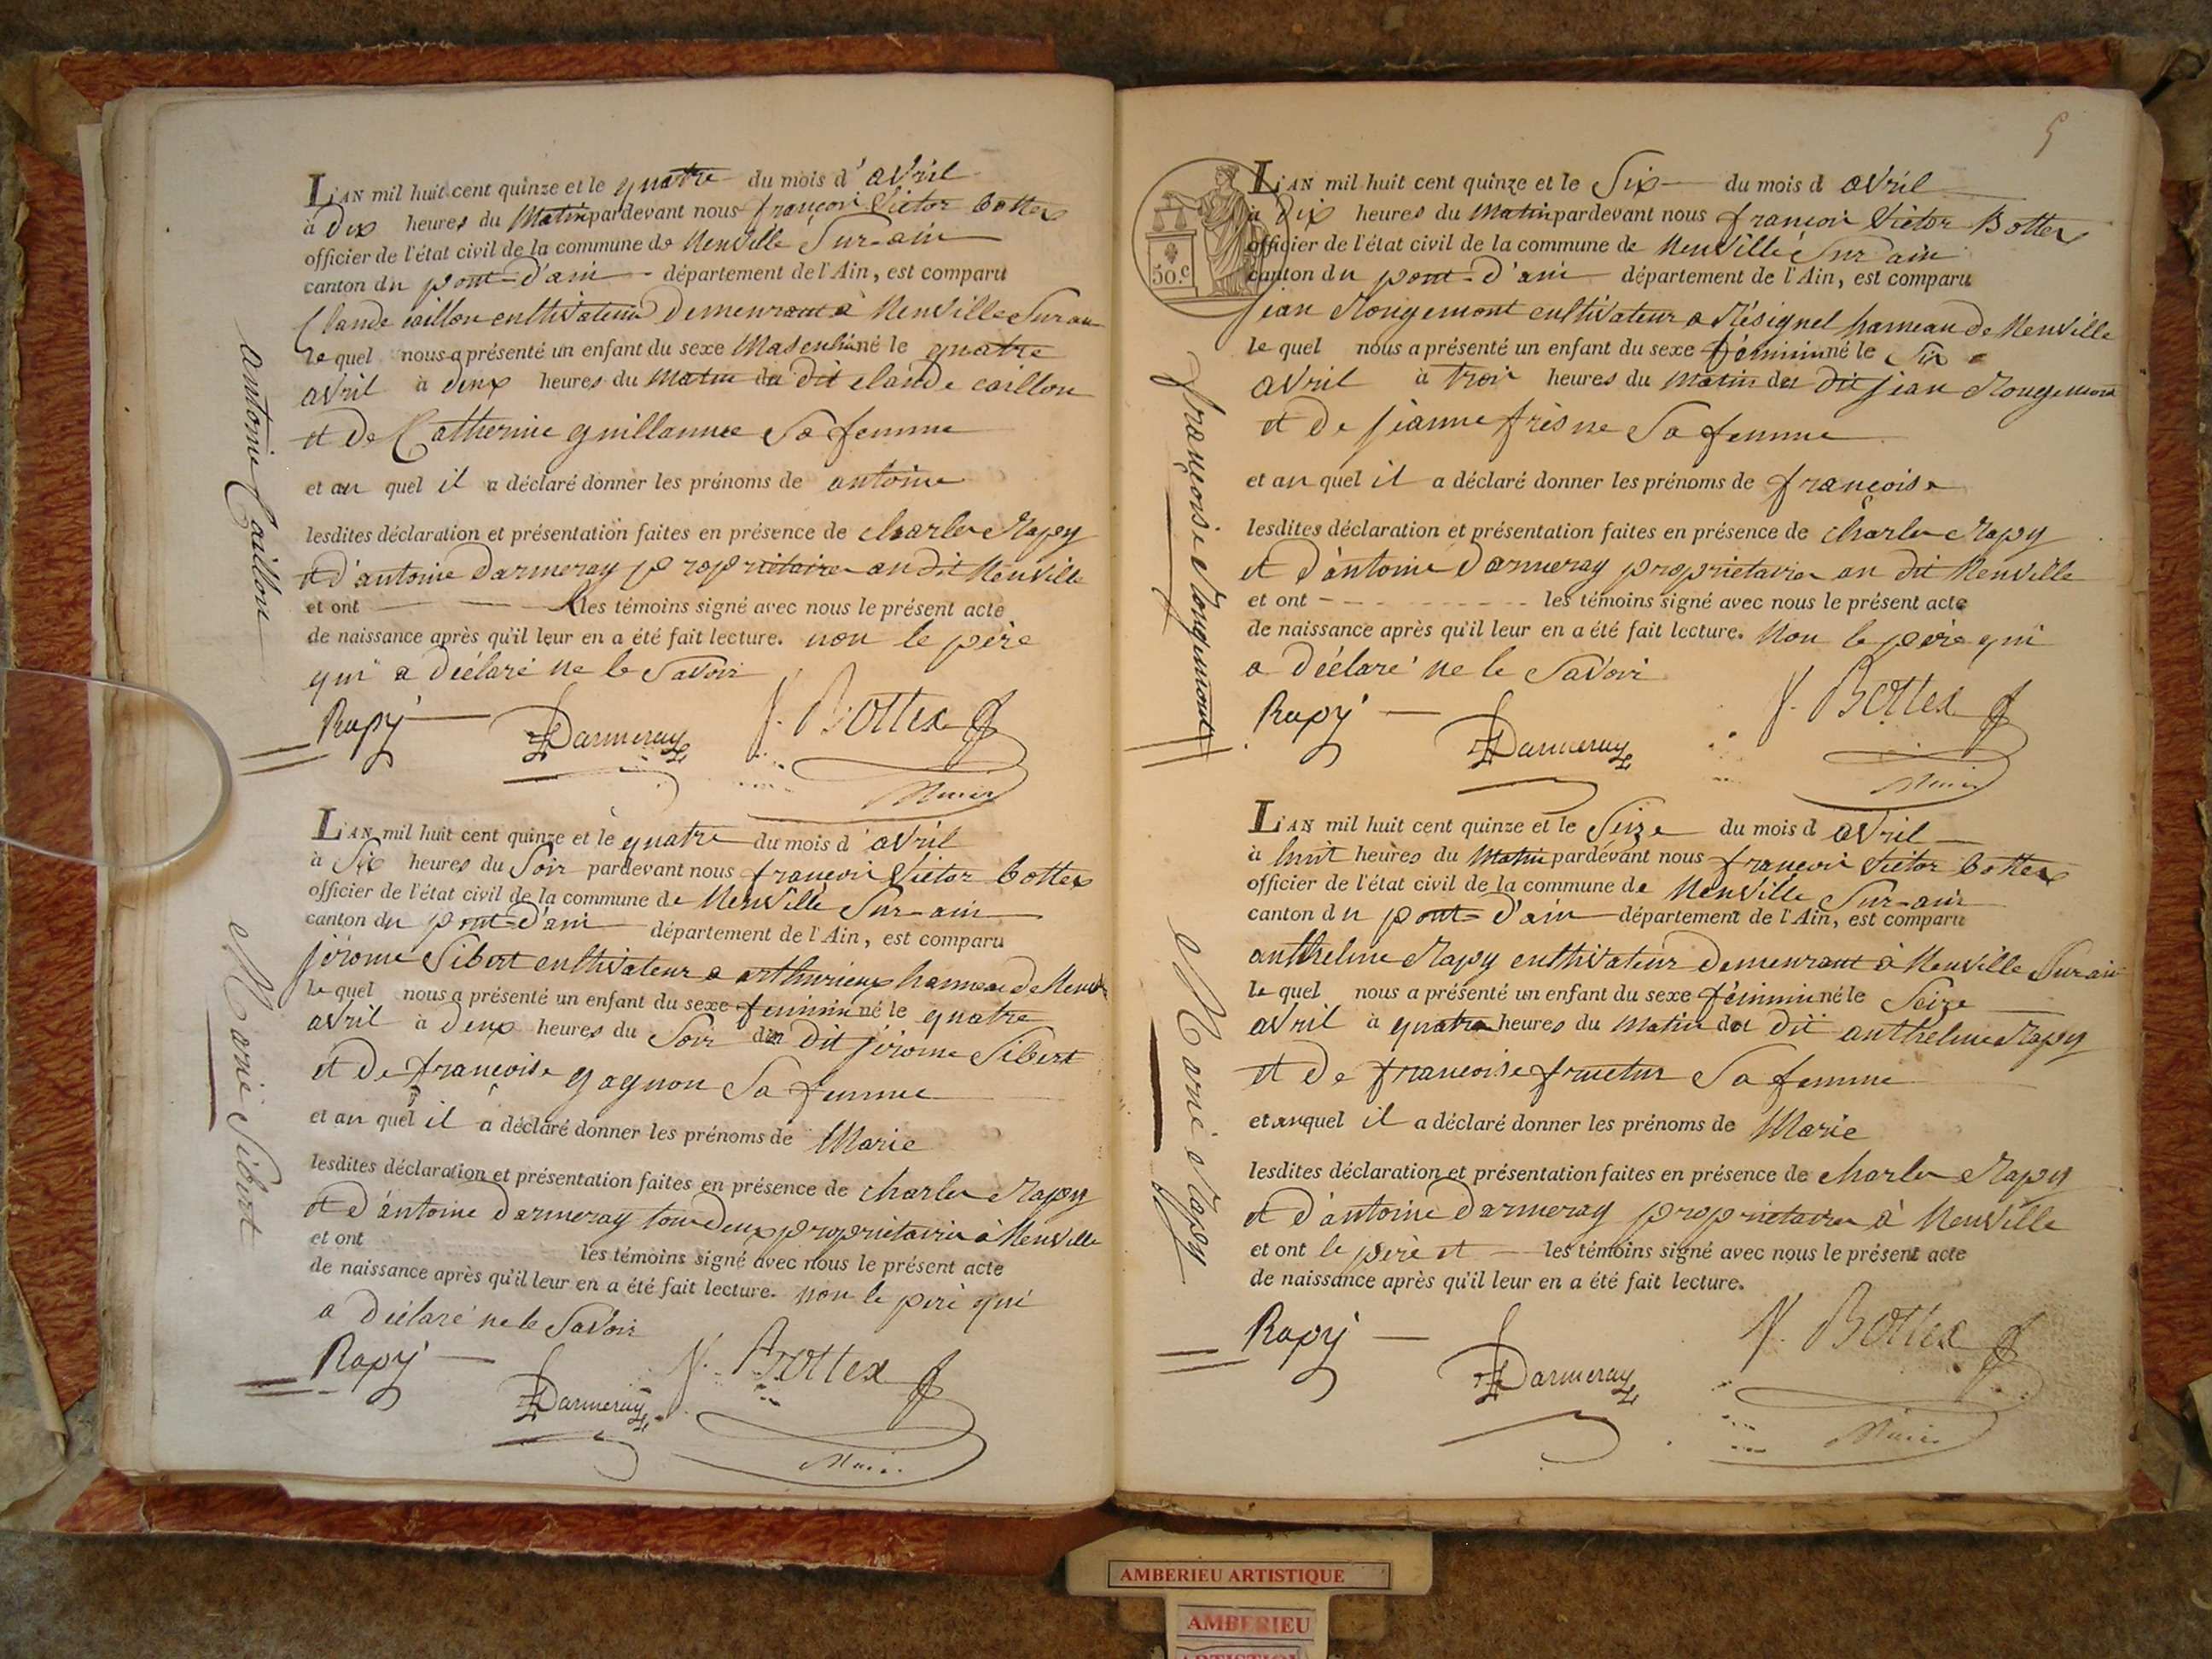 L'AN mil huit cent quinze et le quatre du mois d'avril
à dix heures du Matin pardevant nous françois Victor bottex
officier de l'état civil de la commune de Neuville Sur-ain
canton du pont-d'ain département de l'Ain, est comparu
Claude caillon cultivateur Demeurant à Neuville Sur ain
le quel nous a présenté un enfant du sexe Masculin né le quatre
avril à deux heures du Matin du dit claude caillon
et De Catherine guillaumee Sa femme
et au quel il a déclaré donner les prénoms de antoine
lesdites déclaration et présentation faites en présence de charles Rapy
et d'antoine Darmeray propriétaires au dit Neuville
et ont les témoins signé avec nous le présent acte
de naissance après qu'il leur en a été fait lecture. non le père
qui a déclaré ne le Savoir
Rapy Darmeray V. Bottex
Maire
antoine Caillon
L'AN mil huit cent quinze et le quatre du mois d'avril
à Six heures du Soir pardevant nous françois Victor bottex
officier de l'état civil de la commune de Neuville Sur-ain
canton du pont-d'ain département de l'Ain, est comparu
jérome Sibert cultivateur a arthurieux hameau de Neuville
le quel nous a présenté un enfant du sexe feminin né le quatre
avril à deux heures du Soir du Dit jérome Sibert
et De françoise gagnon Sa femme
et au quel il a déclaré donner les prénoms de Marie
lesdites déclaration et présentation faites en présence de charles Rapy
et d'antoine Darmeray tou deux propriétairie à Neuville
et ont les témoins signé avec nous le présent acte
de naissance après qu'il leur en a été fait lecture. non le père qui
a déclaré ne le Savoir
Rapy Darmeray V. Bottex
Maire
Marie Sibert
5
50.c
L'AN mil huit cent quinze et le Six du mois d avril
à Dix heures du Matin pardevant nous françois Victor Bottex
officier de l'état civil de la commune de Neuville Sur ain
canton du pont-d'ain département de l'Ain, est comparu
jean Rougemont cultivateur a Résignel hameau de Neuville
le quel nous a présenté un enfant du sexe féminin né le Six
avril à trois heures du Matin du dit jean Rougemont
et De jeanne frèsne Sa femme
et au quel il a déclaré donner les prénoms de françoise
lesdites déclaration et présentation faites en présence de charles Rapy
et d'antoine Darmeray propriétaires au dit Neuville
et ont les témoins signé avec nous le présent acte
de naissance après qu'il leur en a été fait lecture. Non le père qui
a déclaré ne le Savoir
Rapy Darmeray V. Bottex
Maire
françoise Rougemont
L'AN mil huit cent quinze et le Seize du mois d avril
à huit heures du Matin pardevant nous françois Victor bottex
officier de l'état civil de la commune de Neuville Sur-ain
canton du pont-d'ain département de l'Ain, est comparu
anthelme Rapy cultivateur Demeurant à Neuville Sur ain
le quel nous a présenté un enfant du sexe féminin né le Seize
avril à quatre heures du Matin du dit anthelme Rapy
et De françoise fructus Sa femme
et auquel il a déclaré donner les prénoms de Marie
lesdites déclaration et présentation faites en présence de charles Rapy
et d'antoine Darmeray propriétaires à Neuville
et ont le père et les témoins signé avec nous le présent acte
de naissance après qu'il leur en a été fait lecture.
Rapy Darmeray V. Bottex
Maire
Marie Rapy
AMBERIEU ARTISTIQUE
AMBERIEU
ARTISTIQUE